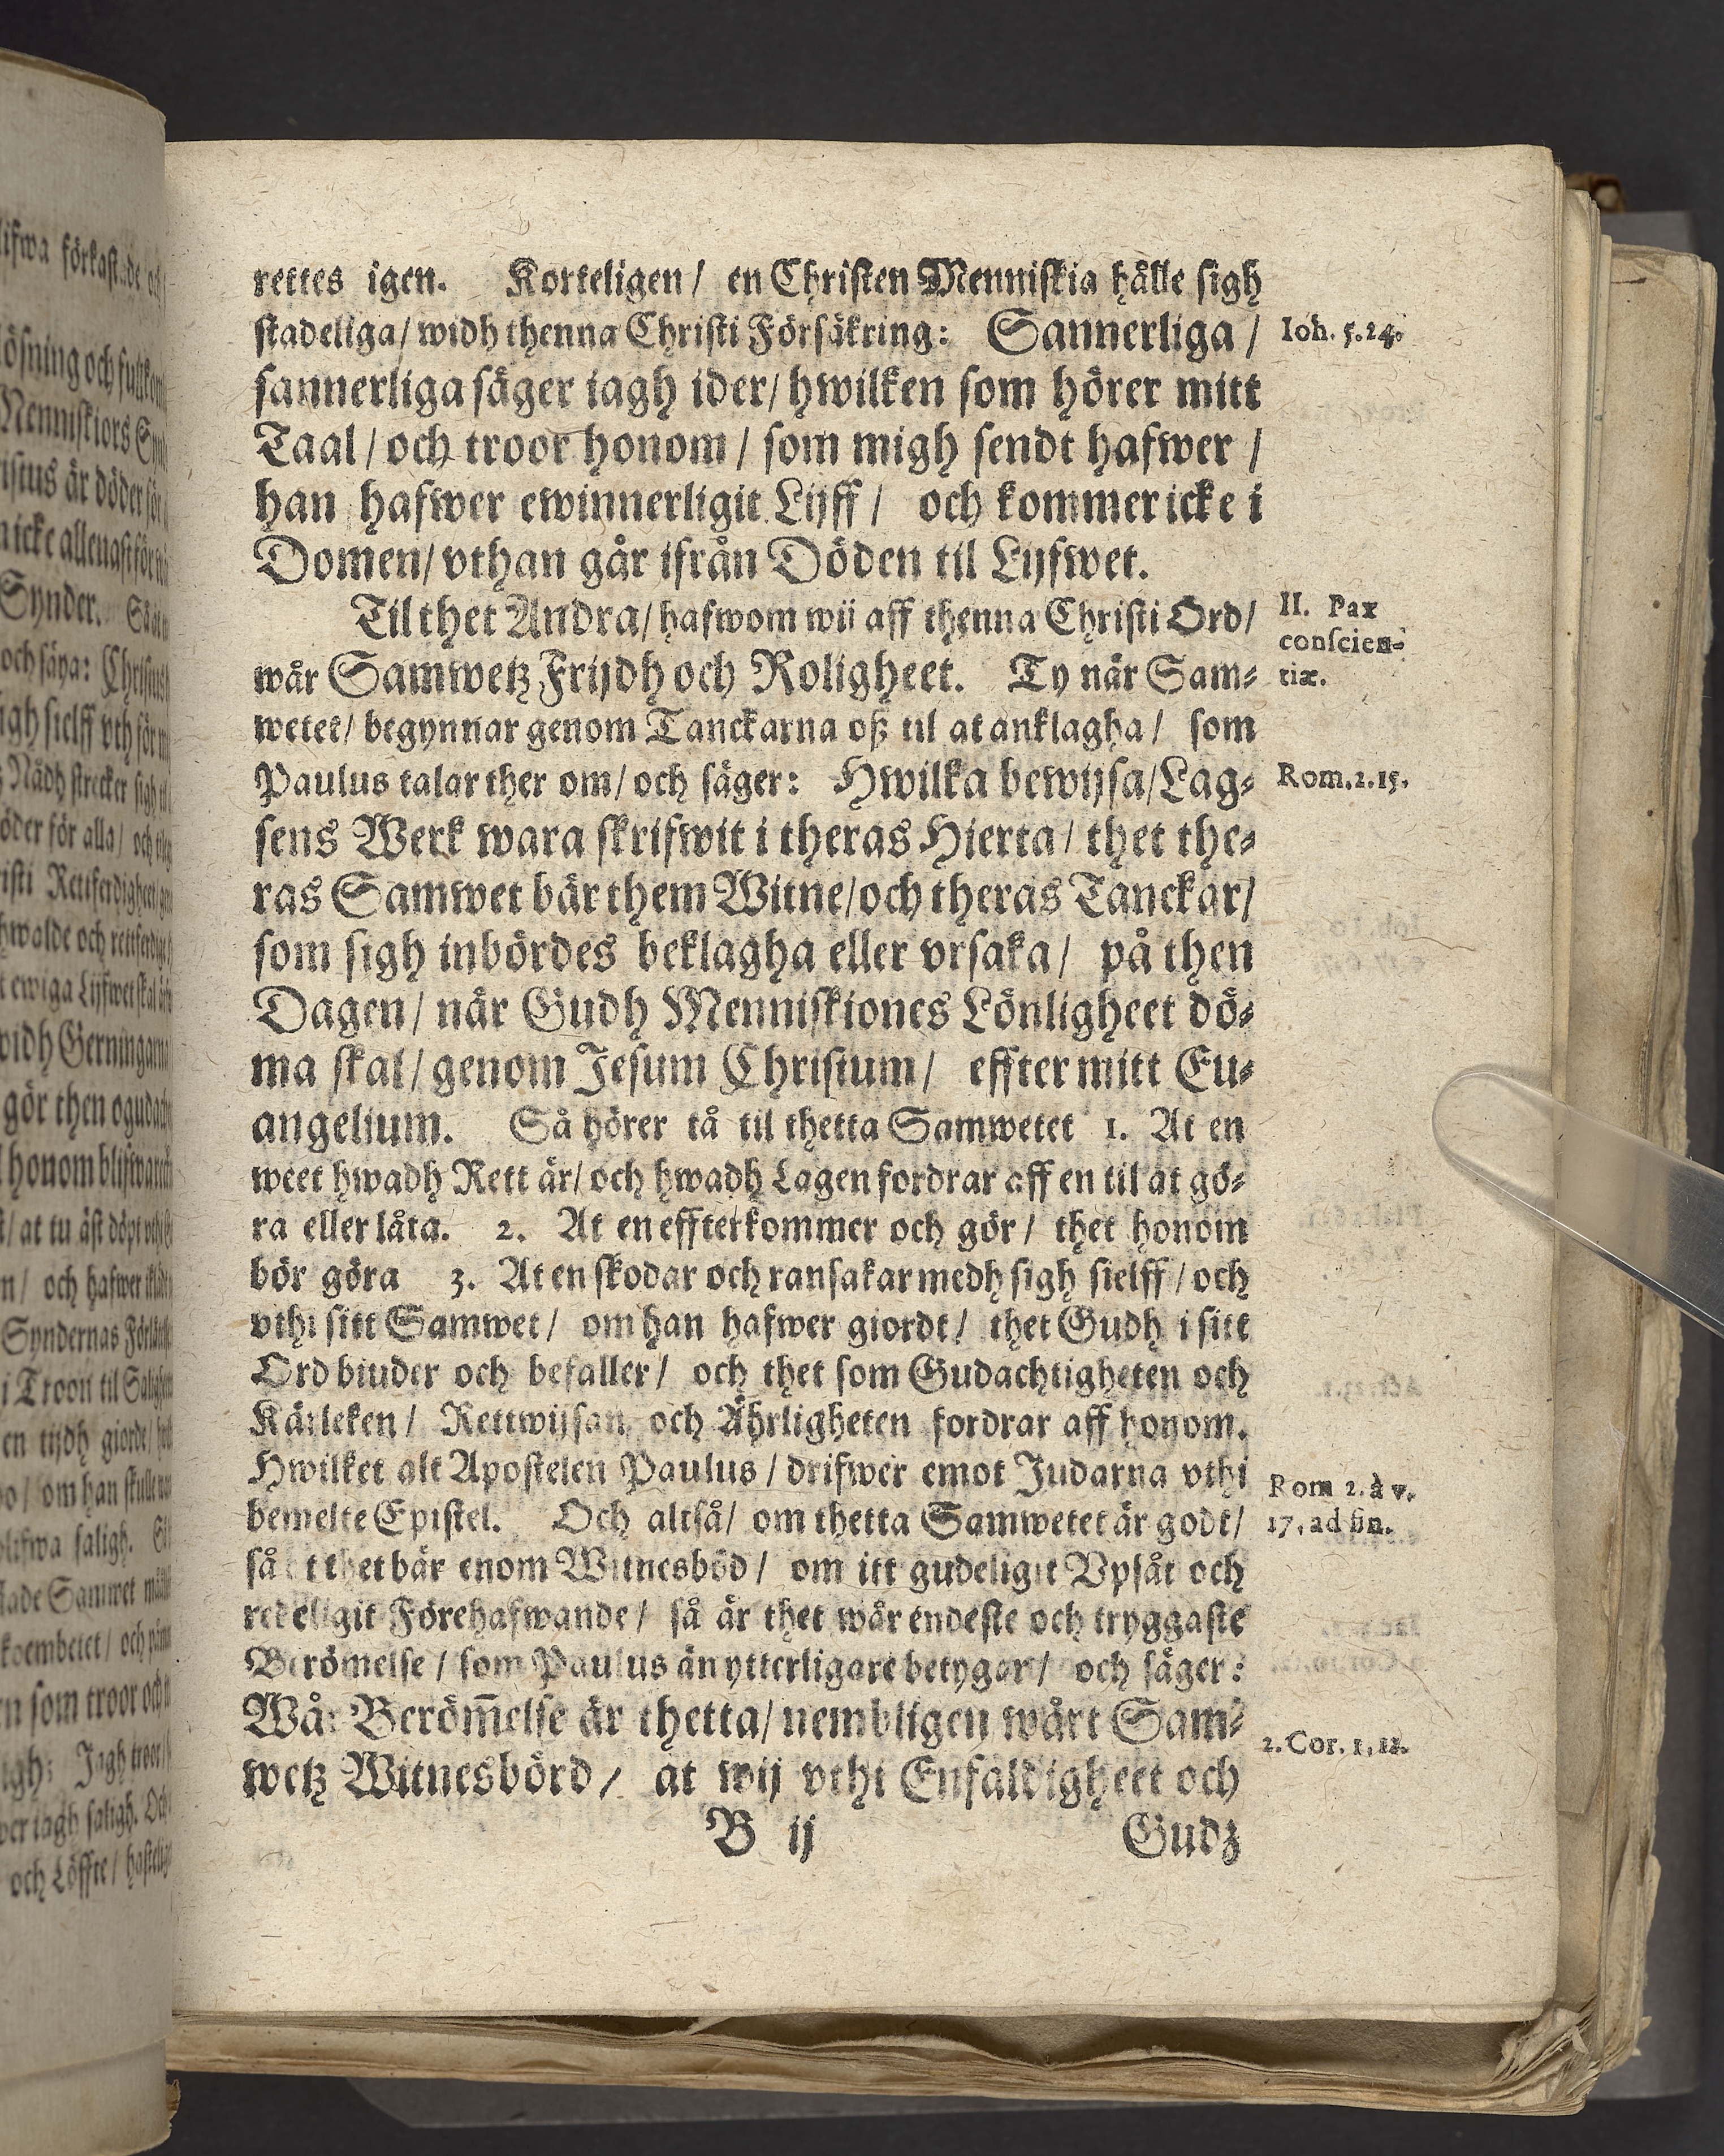 rettes igen. Korteligen / en Christen Menniskia hålle sigh
stadeliga / widh thenna Christi Försäkring: Sannerliga /
Ioh. 5.24.
sannerliga säger iagh ider / hwilken som hörer mitt
Taal / och troor honom / som migh sendt hafwer /
han hafwer ewinnerligit Lijff / och kommer icke i
Domen / vthan går ifrån Döden til Lijfwet.
Til thet Andra / hafwom wij aff thenna Christi Ord /
II. Pax
conscien-
tiæ.
wår Samwetz Frijdh och Roligheet. Ty när Sam-
wetet / begynnar genom Tanckarna oß til at anklagha / som
Paulus talar ther om / och säger: Hwilka bewijsa / Lag-
Rom. 2. 15.
sens Werk wara skrifwit i theras Hierta / thet the-
ras Samwet bär them Witne / och theras Tanckar /
som sigh inbördes beklagha eller vrsaka / på then
Dagen / när Gudh Menniskiones Lönligheet dö-
ma skal / genom Jesum Christum / effter mitt Eu-
angelium. Så hörer tå til thetta Samwetet 1. At en
weet hwadh Rett är / och hwadh Lagen fordrar aff en til at gö-
ra eller låta. 2. At en effterkommer och gör / thet honom
bör göra 3. At en skodar och ransakar medh sigh sielff / och
vthi sitt Samwet / om han hafwer giordt / thet Gudh i sitt
Ord biuder och befaller / och thet som Gudachtigheten och
Kärleken / Rettwijsan och Ährligheten fordrar aff honom.
Hwilket alt Apostelen Paulus / drifwer emot Judarna vthi
Rom 2. à v.
17. ad fin.
bemelte Epistel. Och altså / om thetta Samwetet är godt /
så thet bär enom Witnesböd / om itt gudeligit Vpsåt och
redeligit Förehafwande / så är thet wår endeste och tryggaste
Berömelse / som Paulus än ytterligare betygar / och säger:
Wår Beröm̃else är thetta / nembligen wårt Sam-
2. Cor. 1, 12.
wetz Witnesbörd / at wij vthi Enfaldigheet och
B ij
Gudz